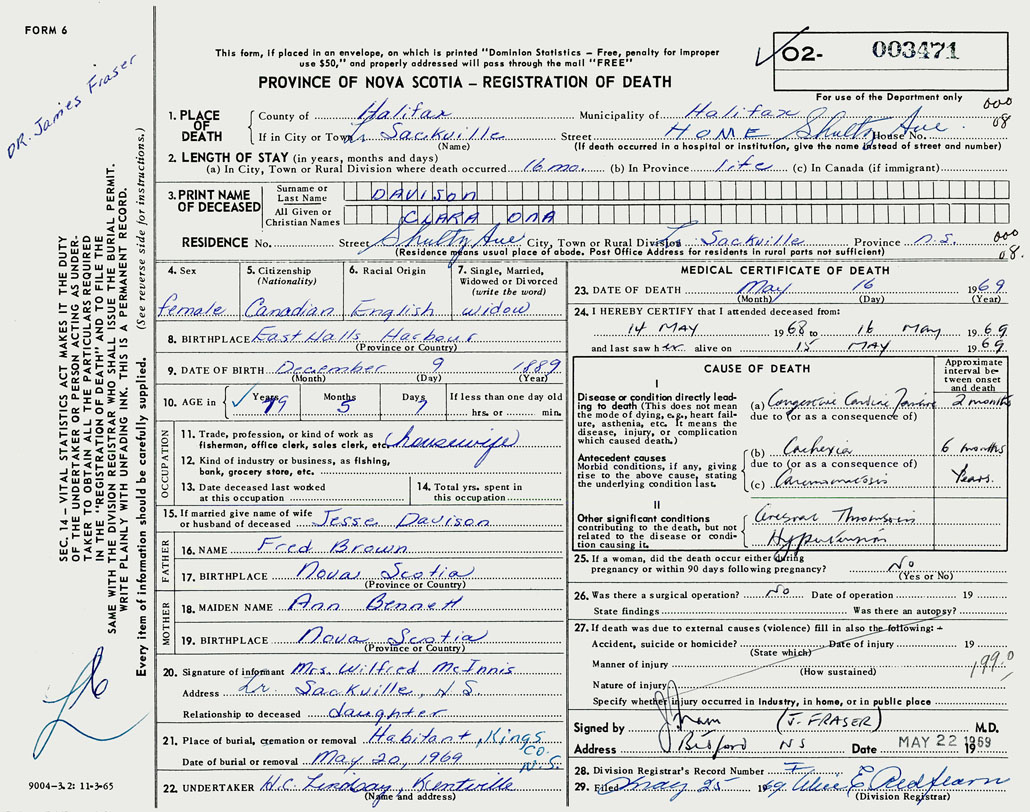 FORM 6
DR. James Fraser
This form, if placed in an envelope, on which is printed "Dominion Statistics – Free, penalty for improper
use $50," and properly addressed will pass through the mail "FREE"
PROVINCE OF NOVA SCOTIA – REGISTRATION OF DEATH
02- 003471
For use of the Department only
000
08
1. PLACE OF DEATH
County of Halifax Municipality of Halifax
If in City or Town Lr. Sackville Street HOME Shultz Ave House No.
(Name) (If death occurred in a hospital or institution, give the name instead of street and number)
2. LENGTH OF STAY (in years, months and days)
(a) In City, Town or Rural Division where death occurred 16 mo. (b) In Province life (c) In Canada (if immigrant)
3. PRINT NAME OF DECEASED
Surname or Last Name DAVISON
All Given or Christian Names CLARA ONA
RESIDENCE No. Street Shultz Ave City, Town or Rural Division Lr. Sackville Province N.S.
000
08.
(Residence means usual place of abode. Post Office Address for residents in rural parts not sufficient)
4. Sex
female
5. Citizenship (Nationality)
Canadian
6. Racial Origin
English
7. Single, Married, Widowed or Divorced (write the word)
widow
8. BIRTHPLACE East Halls Harbour
(Province or Country)
9. DATE OF BIRTH December 9 1889
(Month) (Day) (Year)
10. AGE in Years 79 Months 5 Days 7 If less than one day old
hrs. or min.
OCCUPATION
11. Trade, profession, or kind of work as fisherman, office clerk, sales clerk, etc. (housewife)
12. Kind of industry or business, as fishing, bank, grocery store, etc.
13. Date deceased last worked at this occupation
14. Total yrs. spent in this occupation
15. If married give name of wife or husband of deceased Jesse Davison
FATHER
16. NAME Fred Brown
17. BIRTHPLACE Nova Scotia
(Province or Country)
MOTHER
18. MAIDEN NAME Ann Bennett
19. BIRTHPLACE Nova Scotia
(Province or Country)
20. Signature of informant Mrs. Wilfred McInnis
Address Lr. Sackville, N.S.
Relationship to deceased daughter
21. Place of burial, cremation or removal Habitant, Kings Co. N.S.
Date of burial or removal May 20, 1969
22. UNDERTAKER H.C. Lindsay, Kentville
(Name and address)
MEDICAL CERTIFICATE OF DEATH
23. DATE OF DEATH May 16 1969
(Month) (Day) (Year)
24. I HEREBY CERTIFY that I attended deceased from:
14 MAY 1968 to 16 May 1969
and last saw her alive on 15 MAY 1969
CAUSE OF DEATH
Approximate interval between onset and death
I
Disease or condition directly leading to death (This does not mean the mode of dying, e.g., heart failure, asthenia, etc. It means the disease, injury, or complication which caused death.)
(a) Congestive Cardiac Failure 2 months
due to (or as a consequence of)
Antecedent causes
Morbid conditions, if any, giving rise to the above cause, stating the underlying condition last.
(b) Cachexia 6 months
due to (or as a consequence of)
(c) Carcinomatosis Years.
II
Other significant conditions contributing to the death, but not related to the disease or condition causing it.
Cerebral Thrombosis
Hypertension
25. If a woman, did the death occur either during pregnancy or within 90 days following pregnancy? No
(Yes or No)
26. Was there a surgical operation? No Date of operation 19
State findings Was there an autopsy?
27. If death was due to external causes (violence) fill in also the following: –
Accident, suicide or homicide? Date of injury 19
(State which)
Manner of injury
(How sustained)
199.0
Nature of injury
Specify whether injury occurred in Industry, in home, or in public place
Signed by (J. FRASER) M.D.
Address NS Date MAY 22 1969
28. Division Registrar's Record Number
29. Filed May 25 1969
(Division Registrar)
SEC. 14 – VITAL STATISTICS ACT MAKES IT THE DUTY
OF THE UNDERTAKER OR PERSON ACTING AS UNDER-
TAKER TO OBTAIN ALL THE PARTICULARS REQUIRED
IN THE "REGISTRATION OF DEATH" AND TO FILE THE
SAME WITH THE DIVISION REGISTRAR WHO SHALL ISSUE THE BURIAL PERMIT.
WRITE PLAINLY WITH UNFADING INK. THIS IS A PERMANENT RECORD.
Every item of information should be carefully supplied. (See reverse side for instructions.)
9004-3.2: 11-3-65